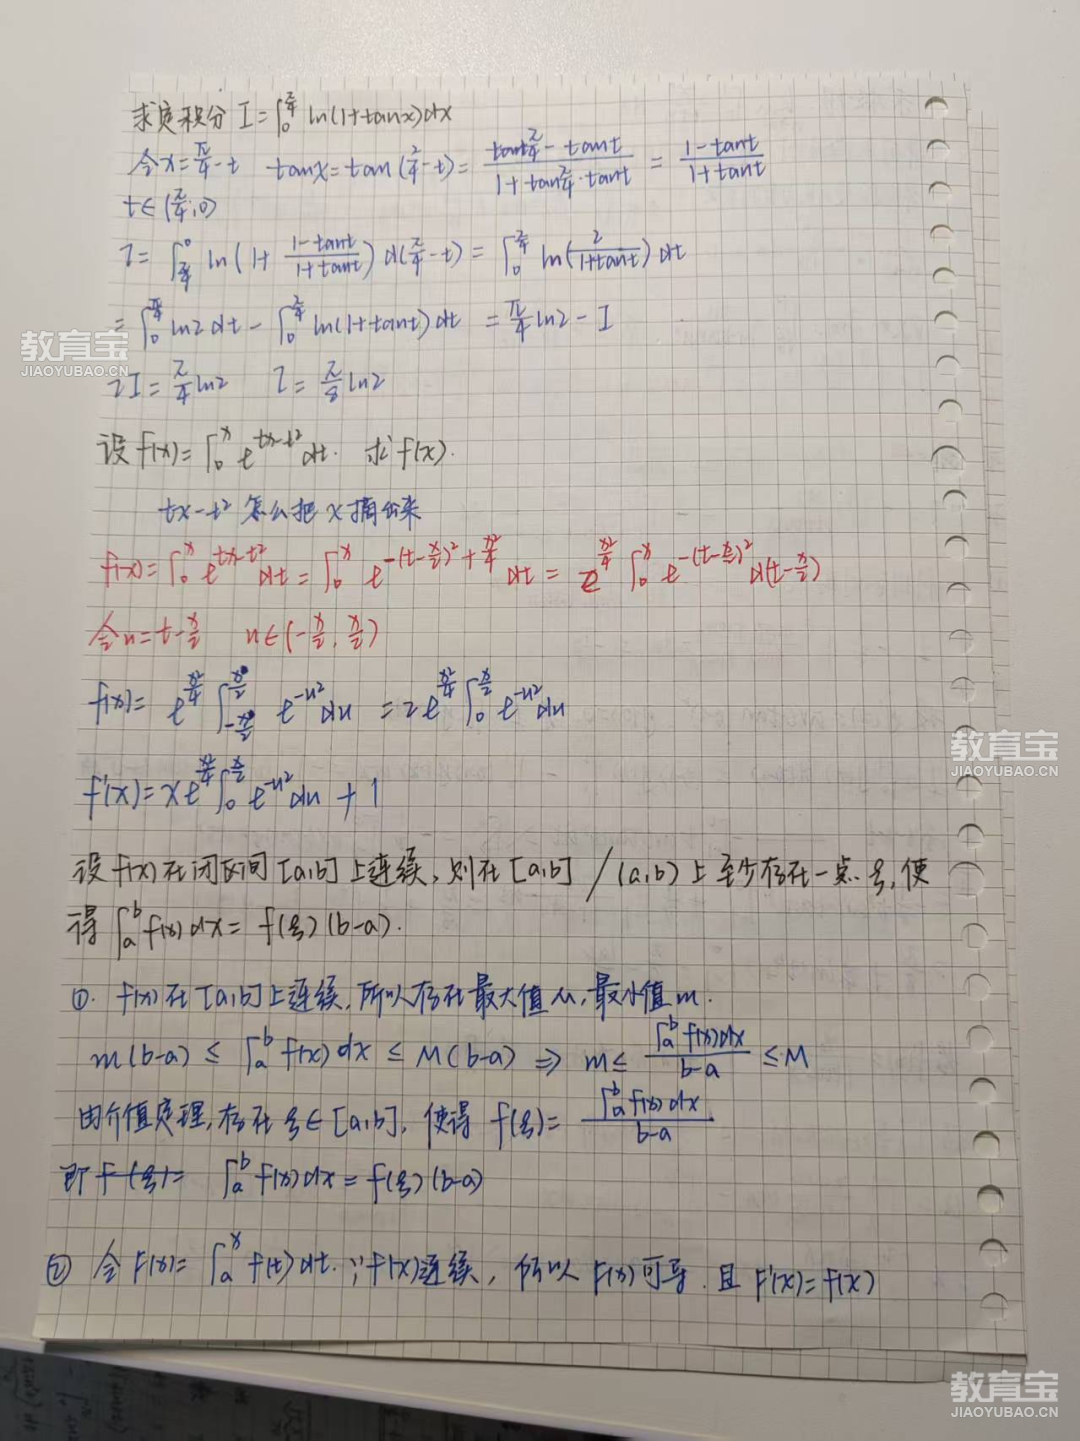 求定积分 I=∫₀^{π/4} ln(1+tanx)dx
令x=π/4-t tanx=tan(π/4-t)=(tanπ/4-tant)/(1+tanπ/4·tant)=(1-tant)/(1+tant)
t∈(π/4,0)
I=∫_{π/4}^0 ln(1+(1-tant)/(1+tant))d(π/4-t)=∫₀^{π/4} ln(2/(1+tant))dt
=∫₀^{π/4} ln2dt-∫₀^{π/4} ln(1+tant)dt=π/4 ln2-I
教育宝
JIAOYUBAO.CN
2I=π/4 ln2 I=π/8 ln2
设f(x)=∫₀^x e^{tx-t²}dt. 求f'(x).
tx-t²怎么把x摘出来
f(x)=∫₀^x e^{tx-t²}dt=∫₀^x e^{-(t-x/2)²+x²/4}dt=e^{x²/4}∫₀^x e^{-(t-x/2)²}d(t-x/2)
令u=t-x/2 u∈(-x/2,x/2)
f(x)=e^{x²/4}∫_{-x/2}^{x/2} e^{-u²}du=2e^{x²/4}∫₀^{x/2} e^{-u²}du
教育宝
JIAOYUBAO.CN
f'(x)=xe^{x²/4}∫₀^{x/2} e^{-u²}du+1
设f(x)在闭区间[a,b]上连续,则在[a,b]/(a,b)上至少存在一点ξ,使
得∫_a^b f(x)dx=f(ξ)(b-a).
①. f(x)在[a,b]上连续,所以存在最大值M,最小值m.
m(b-a)≤∫_a^b f(x)dx≤M(b-a)⇒m≤(∫_a^b f(x)dx)/(b-a)≤M
由介值定理,存在ξ∈[a,b],使得f(ξ)=(∫_a^b f(x)dx)/(b-a)
即f(ξ)= ∫_a^b f(x)dx=f(ξ)(b-a)
② 令F(x)=∫_a^x f(t)dt.∵f(x)连续,所以F(x)可导.且F'(x)=f(x)
教育宝
JIAOYUBAO.CN